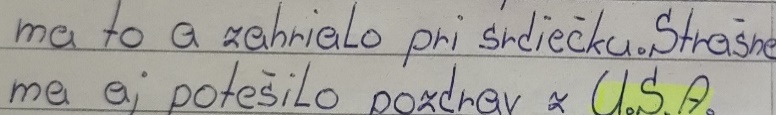 ma to a zahrialo pri srdiečku. Strašne
ma aj potešilo pozdrav z U.S.A.